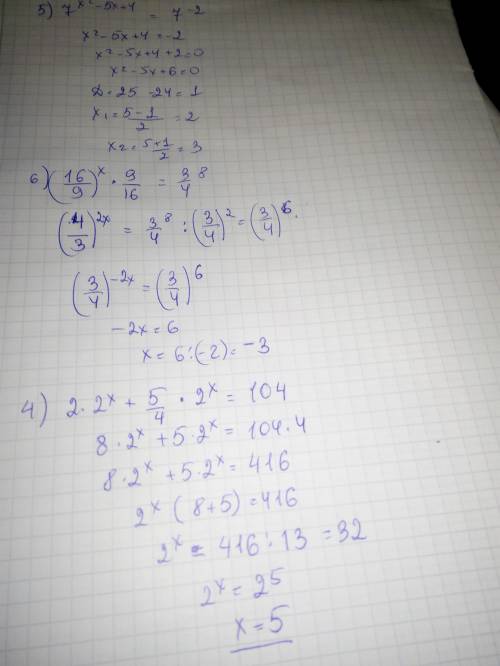 5) 7^(x²-5x+4) = 7^-2
x²-5x+4=-2
x²-5x+4+2=0
x²-5x+6=0
D=25-24=1
x₁=(5-1)/2=2
x₂=(5+1)/2=3
6) (16/9)^x · 9/16 = 3/4^8
(4/3)^2x = 3/4^8 : (3/4)^2 = (3/4)^6.
(3/4)^-2x = (3/4)^6
-2x=6
x=6:(-2)=-3
4) 2·2^x + 5/4 · 2^x = 104
8·2^x + 5·2^x = 104·4
8·2^x + 5·2^x = 416
2^x (8+5) = 416
2^x = 416:13 = 32
2^x = 2^5
x=5